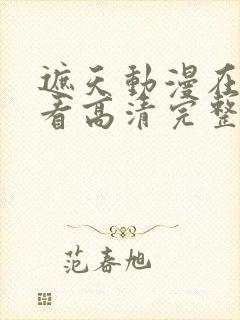 遮天動漫在
看高清完整
范春旭